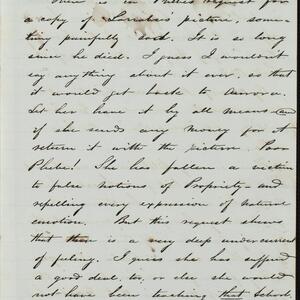 There is in Phebe's request for
a copy of picture, some-
thing painfully sad. It is so long
since he died. I guess I wouldn't
say anything about it ever, so that
it would get back to Aurora.
Let her have it by all means, and
if she sends any money for it
return it with the picture. Poor
Phebe! She has fallen a victim
to false notions of Propriety – and
repelling every expression of natural
emotion. But this request shows
that there is a very deep undercurrent
of feeling. I guess she has suffered
a good deal, too, or else she would
not have been teaching that School